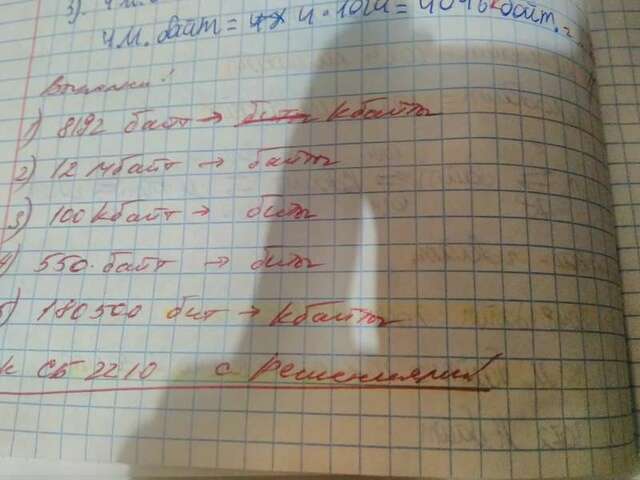 4 М. байт = 4 · 1024 = 4096 кбайт.
1) 8192 байт → биты Кбайты
2) 12 Мбайт → байты
3) 100 Кбайт → биты
4) 550. байт → биты
5) 180500 бит → Кбайты
к СБ 22 10 с Решениями